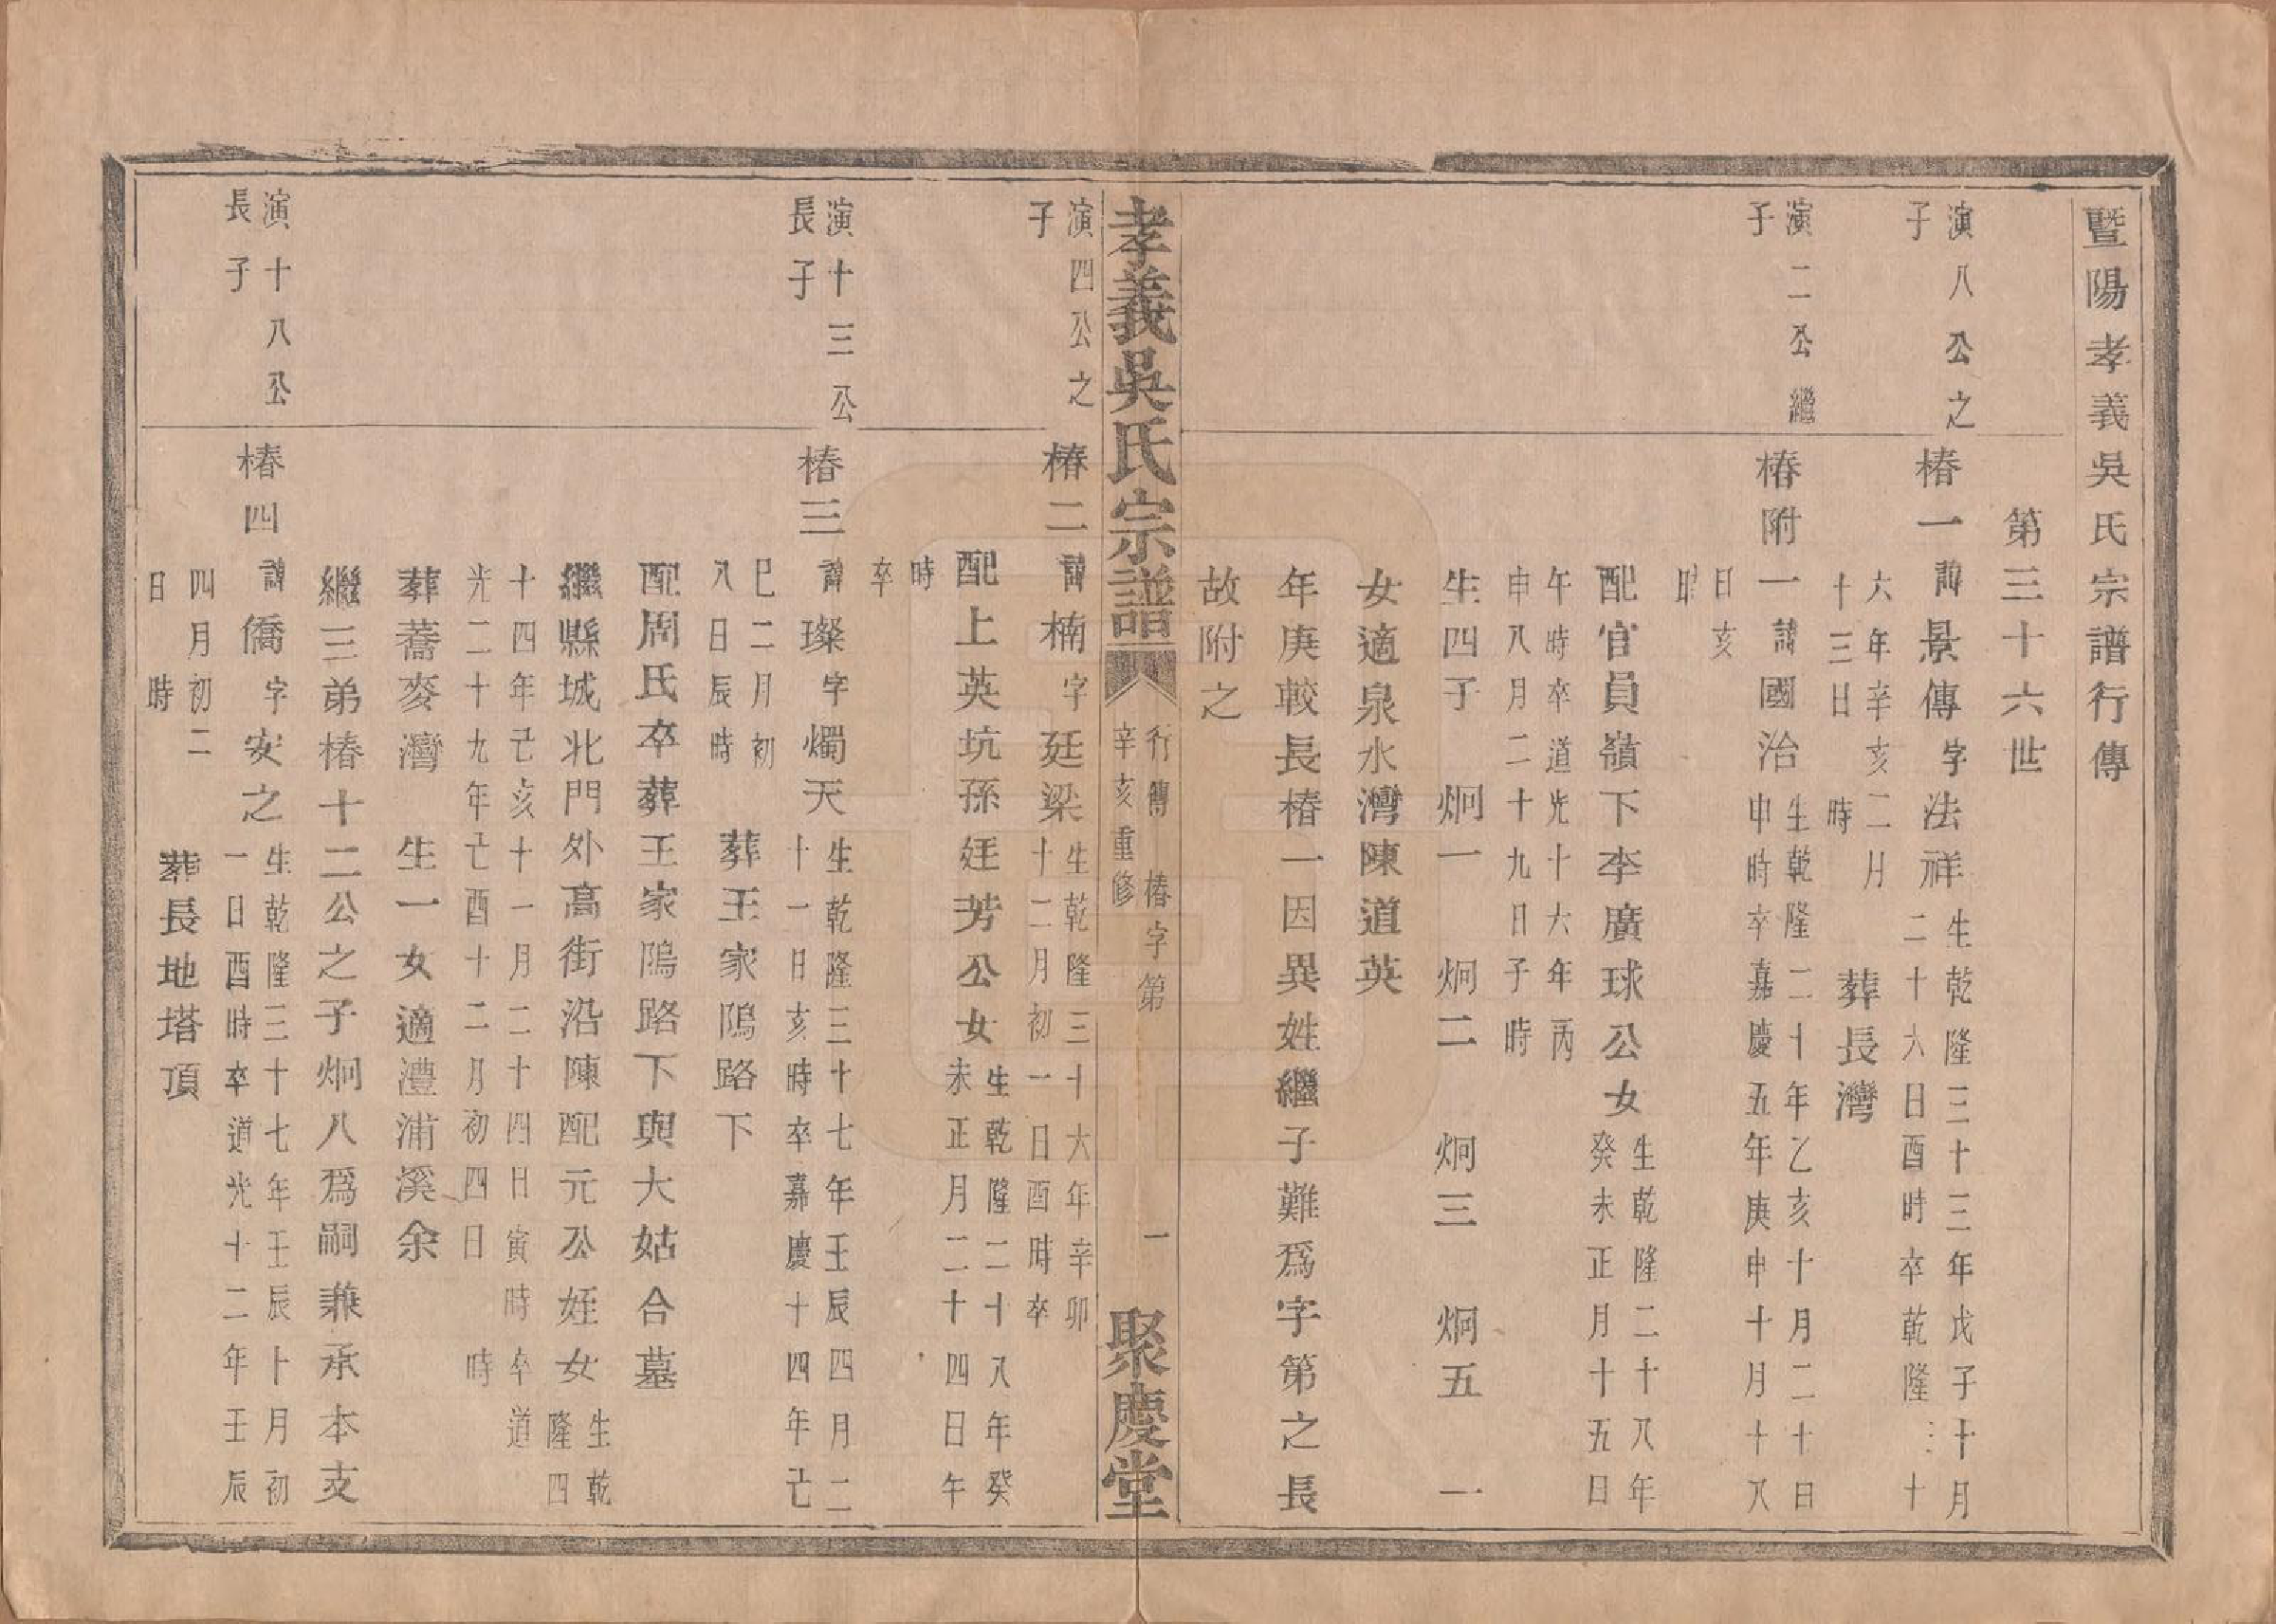 暨陽孝義吳氏宗譜行傳
第三十六世
演八公之
子
椿一諱景傳字法祥生乾隆三十三年戊子十月
二十六日酉時卒乾隆三十
六年辛亥二月
十三日　時
葬長灣
演二公繼
子
椿附一諱國治生乾隆二十年乙亥十月二十日
申時卒嘉慶五年庚申十月十八
日亥
時
配官員嶺下李廣球公女生乾隆二十八年
癸未正月十五日
午時卒道光十六年丙
申八月二十九日子時
生四子　炯一　炯二　炯三　炯五　一
女適泉水灣陳道英
年庚較長椿一因異姓繼子難爲字第之長
故附之
孝義吳氏宗譜
行傳　椿字第　一
辛亥重修
聚慶堂
演四公之
子
椿二諱楠字廷梁生乾隆三十六年辛卯
十二月初一日酉時卒
配上英坑孫廷芳公女生乾隆二十八年癸
未正月二十四日午
時
卒
演十三公
長子
椿三諱璨字燭天生乾隆三十七年壬辰四月二
十一日亥時卒嘉慶十四年己
巳二月初
八日辰時
葬王家隖路下
配周氏卒葬王家隖路下與大姑合墓
繼縣城北門外高街沿陳配元公姪女生乾
隆四
十四年己亥十一月二十四日寅時卒道
光二十九年己酉十二月初四日　時
葬蕎麥灣　生一女適澧浦溪余
繼三弟椿十二公之子炯八爲嗣兼承本支
演十八公
長子
椿四諱僑字安之生乾隆三十七年壬辰十月初
一日酉時卒道光十二年壬辰
四月初二
日　時
葬長地塔頂